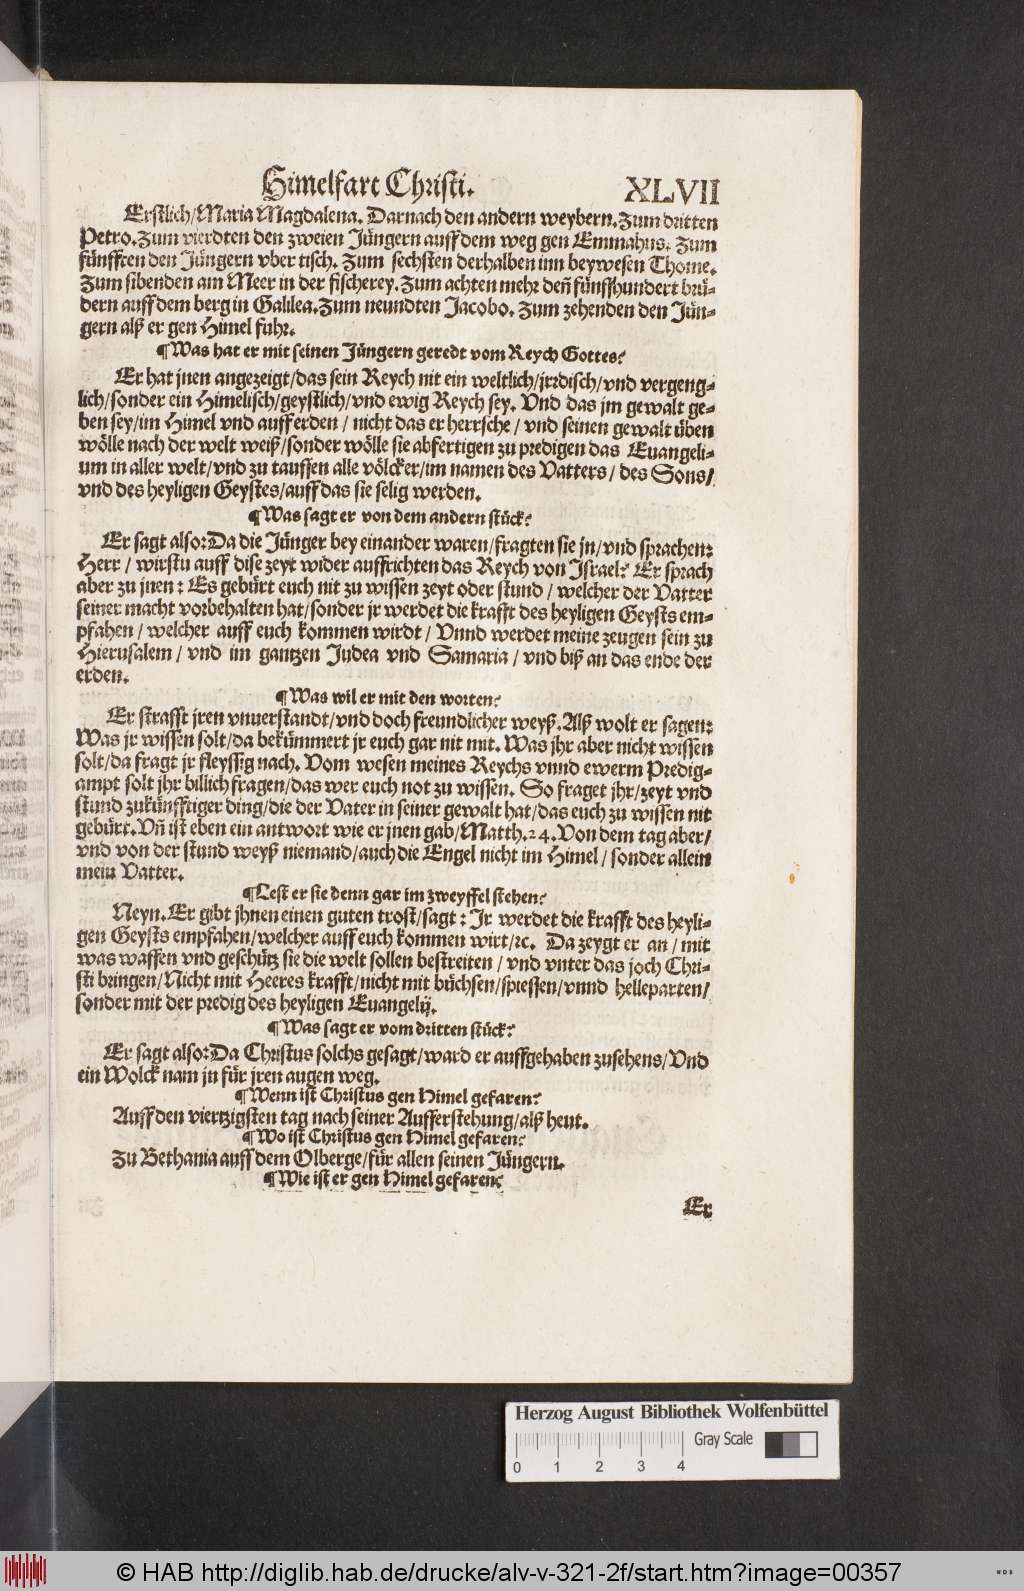 Himelfart Christi. XLVII
Erstlich/Maria Magdalena. Darnach den andern weybern. Zum dritten
Petro. Zum vierdten den zweien Jüngern auff dem weg gen Emmahus. Zum
fünfften den Jüngern vber tisch. Zum sechsten derhalben inn beywesen Thome.
Zum sibenden am Meer in der fischerey. Zum achten mehr deñ fünffhundert brü-
dern auff dem berg in Galilea. Zum neundten Jacobo. Zum zehenden den Jün-
gern alß er gen Himel fuhr.
¶ Was hat er mit seinen Jüngern geredt vom Reych Gottes?
Er hat jnen angezeigt/das sein Reych nit ein weltlich/jrrdisch/vnd vergeng-
lich/sonder ein Himelisch/geystlich/vnd ewig Reych sey. Vnd das jm gewalt ge-
ben sey/im Himel vnd auff erden / nicht das er herrsche / vnd seinen gewalt üben
wölle nach der welt weiß/sonder wölle sie abfertigen zu predigen das Euangeli-
um in aller welt/vnd zu tauffen alle völcker/im namen des Vatters / des Sons/
vnd des heyligen Geystes/auff das sie selig werden.
¶ Was sagt er von dem andern stück?
Er sagt also: Da die Jünger bey einander waren/fragten sie jn/vnd sprachen:
Herr / wirstu auff dise zeyt wider auffrichten das Reych von Israel? Er sprach
aber zu jnen : Es gebürt euch nit zu wissen zeyt oder stund / welcher der Vatter
seiner macht vorbehalten hat/sonder jr werdet die krafft des heyligen Geysts em-
pfahen / welcher auff euch kommen wirdt / Vnnd werdet meine zeugen sein zu
Hierusalem / vnd im gantzen Judea vnd Samaria / vnd biß an das ende der
erden.
¶ Was wil er mit den worten?
Er strafft jren vnuerstandt/vnd doch freundlicher weyß. Alß wolt er sagen:
Was jr wissen solt/da bekümmert jr euch gar nit mit. Was jhr aber nicht wissen
solt/da fragt jr fleyssig nach. Vom wesen meines Reychs vnnd ewerm Predig-
ampt solt jhr billich fragen/das wer euch not zu wissen. So fraget jhr/zeyt vnd
stund zukünfftiger ding/die der Vater in seiner gewalt hat/das euch zu wissen nit
gebürt. Vñ ist eben ein antwort wie er jnen gab/Matth. 24. Von dem tag aber/
vnd von der stund weyß niemand/auch die Engel nicht im Himel / sonder allein
mein Vatter.
¶ Lest er sie denn gar im zweyffel stehen?
Neyn. Er gibt jhnen einen guten trost/sagt : Jr werdet die krafft des heyli-
gen Geysts empfahen/welcher auff euch kommen wirt/ꝛc. Da zeygt er an / mit
was waffen vnd geschütz sie die welt sollen bestreiten / vnd vnter das joch Chri-
sti bringen/Nicht mit Heeres krafft/nicht mit büchsen/spiessen/vnnd helleparten/
sonder mit der predig des heyligen Euangelij.
¶ Was sagt er vom dritten stück?
Er sagt also: Da Christus solchs gesagt/ward er auffgehaben zusehens/Vnd
ein Wolck nam jn für jren augen weg.
¶ Wenn ist Christus gen Himel gefaren?
Auff den viertzigsten tag nach seiner Aufferstehung/alß heut.
¶ Wo ist Christus gen Himel gefaren?
Zu Bethania auff dem Olberge/für allen seinen Jüngern.
¶ Wie ist er gen Himel gefaren?
Er
Herzog August Bibliothek Wolfenbüttel
Gray Scale
0 1 2 3 4
© HAB http://diglib.hab.de/drucke/alv-v-321-2f/start.htm?image=00357